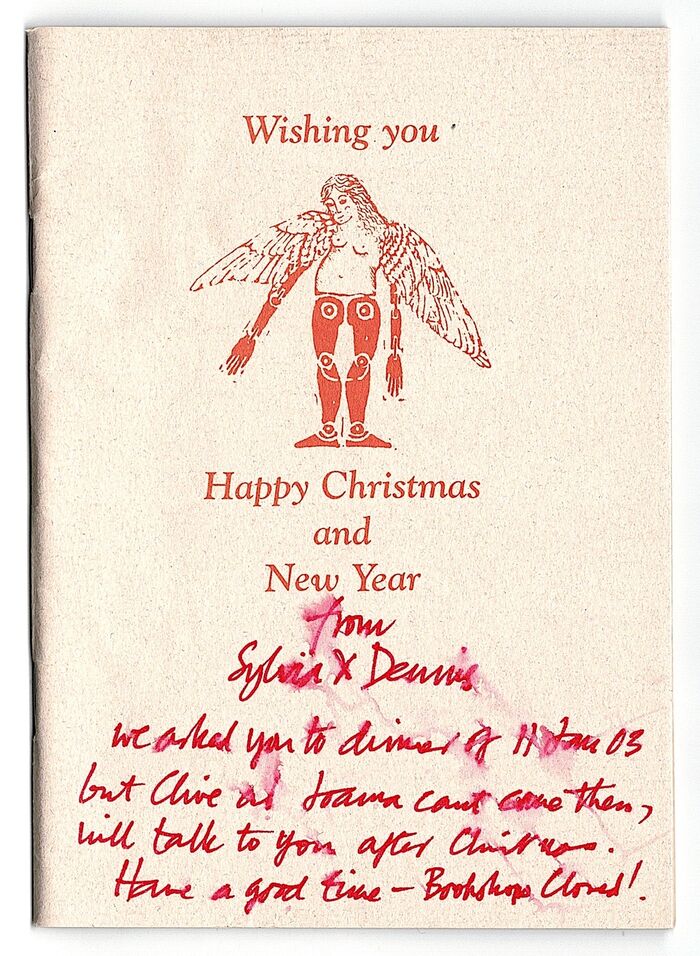 Wishing you
Happy Christmas
and
New Year
from
Sylvia X Dennis
we asked you to dinner of 11 Jan 03
but Clive and Joanna cant come then,
will talk to you after Christmas.
Have a good time – Bookshops Closed!